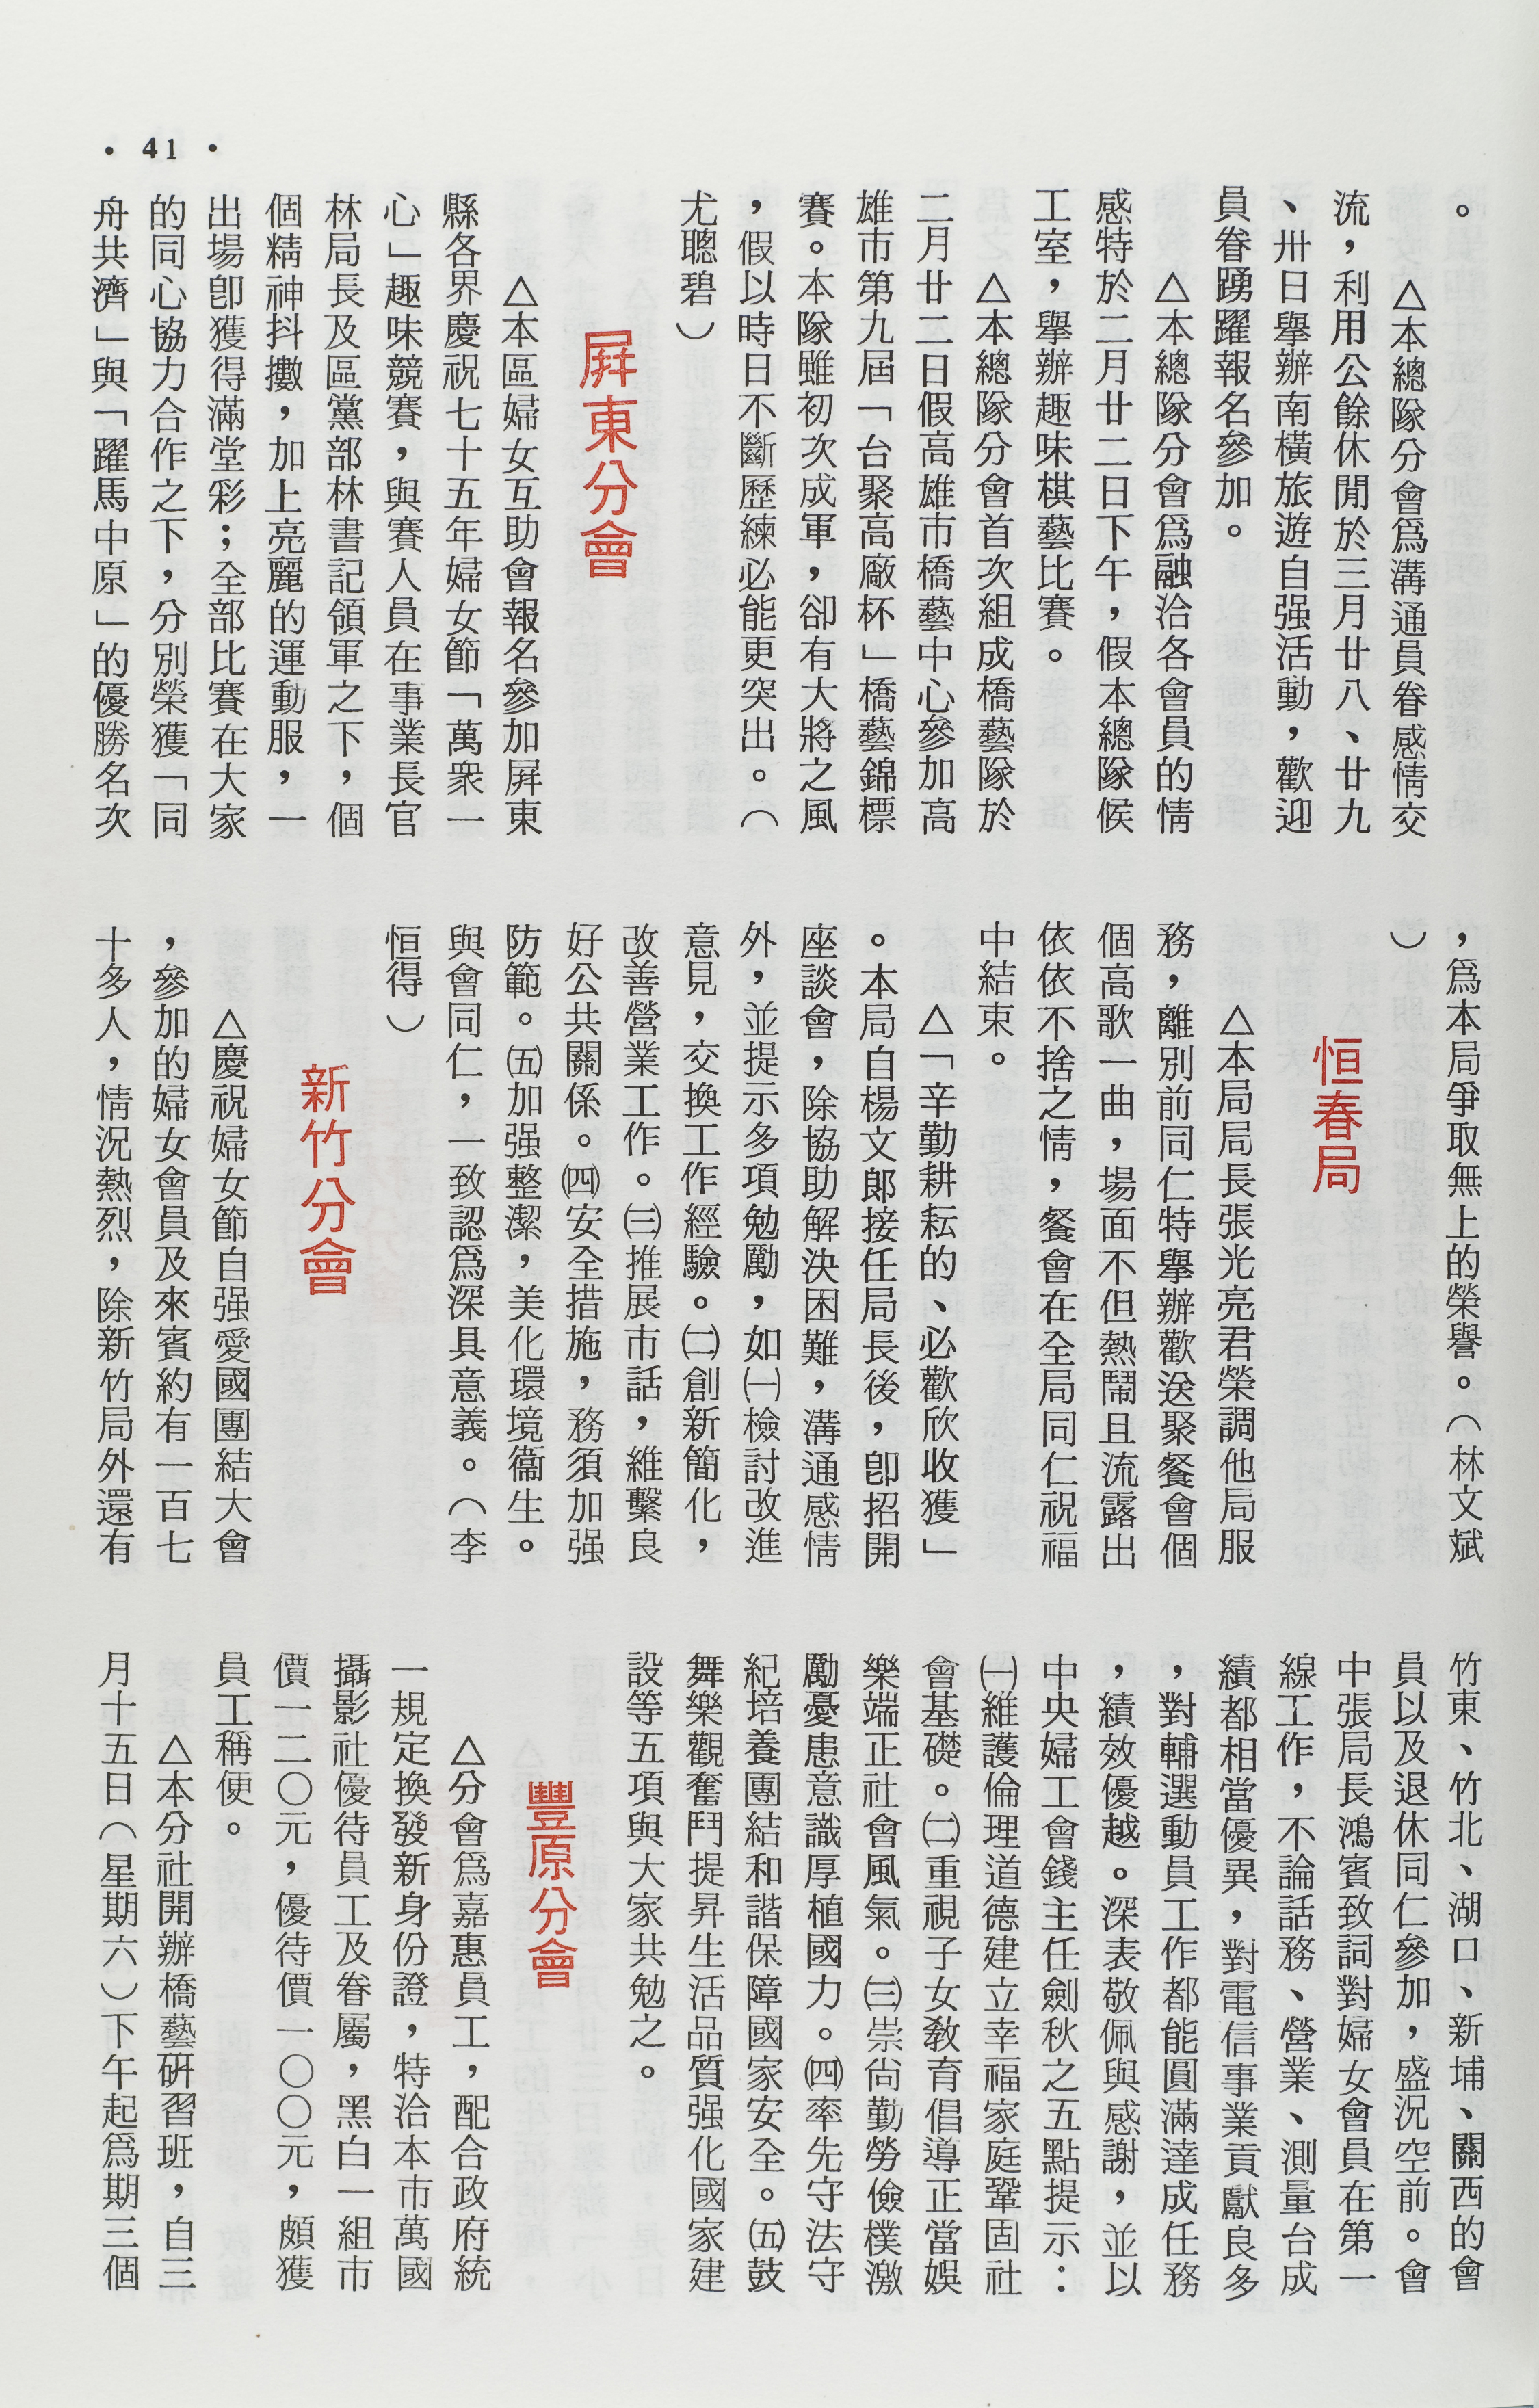 • 41 •
。
△本總隊分會爲溝通員眷感情交
流，利用公餘休閒於三月廿八、廿九
、卅日擧辦南橫旅遊自强活動，歡迎
員眷踴躍報名參加。
△本總隊分會爲融洽各會員的情
感特於二月廿二日下午，假本總隊候
工室，擧辦趣味棋藝比賽。
△本總隊分會首次組成橋藝隊於
二月廿二日假高雄市橋藝中心參加高
雄市第九屆「台聚高廠杯」橋藝錦標
賽。本隊雖初次成軍，卻有大將之風
，假以時日不斷歷練必能更突出。（
尤聰碧）
屛東分會
△本區婦女互助會報名參加屛東
縣各界慶祝七十五年婦女節「萬衆一
心」趣味競賽，與賽人員在事業長官
林局長及區黨部林書記領軍之下，個
個精神抖擻，加上亮麗的運動服，一
出場卽獲得滿堂彩；全部比賽在大家
的同心協力合作之下，分別榮獲「同
舟共濟」與「躍馬中原」的優勝名次
，爲本局爭取無上的榮譽。（林文斌
）
恒春局
△本局局長張光亮君榮調他局服
務，離別前同仁特擧辦歡送聚餐會個
個高歌一曲，場面不但熱鬧且流露出
依依不捨之情，餐會在全局同仁祝福
中結束。
△「辛勤耕耘的、必歡欣收獲」
。本局自楊文郞接任局長後，卽招開
座談會，除協助解決困難，溝通感情
外，並提示多項勉勵，如㈠檢討改進
意見，交換工作經驗。㈡創新簡化，
改善營業工作。㈢推展市話，維繫良
好公共關係。㈣安全措施，務須加强
防範。㈤加强整潔，美化環境衞生。
與會同仁，一致認爲深具意義。（李
恒得）
新竹分會
△慶祝婦女節自强愛國團結大會
，參加的婦女會員及來賓約有一百七
十多人，情況熱烈，除新竹局外還有
竹東、竹北、湖口、新埔、關西的會
員以及退休同仁參加，盛況空前。會
中張局長鴻賓致詞對婦女會員在第一
線工作，不論話務、營業、測量台成
績都相當優異，對電信事業貢獻良多
，對輔選動員工作都能圓滿達成任務
，績效優越。深表敬佩與感謝，並以
中央婦工會錢主任劍秋之五點提示：
㈠維護倫理道德建立幸福家庭鞏固社
會基礎。㈡重視子女敎育倡導正當娛
樂端正社會風氣。㈢崇尙勤勞儉樸激
勵憂患意識厚植國力。㈣率先守法守
紀培養團結和諧保障國家安全。㈤鼓
舞樂觀奮鬥提昇生活品質强化國家建
設等五項與大家共勉之。
豐原分會
△分會爲嘉惠員工，配合政府統
一規定換發新身份證，特洽本市萬國
攝影社優待員工及眷屬，黑白一組市
價一二〇元，優待價一〇〇元，頗獲
員工稱便。
△本分社開辦橋藝硏習班，自三
月十五日（星期六）下午起爲期三個